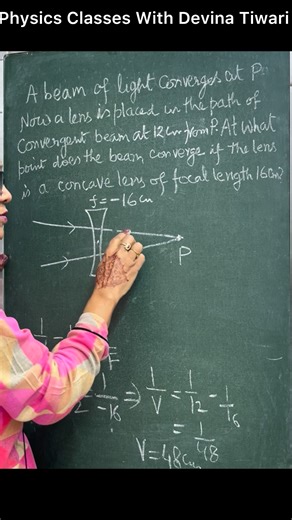 Physics Classes With Devina Tiwari
A beam of light converges at P.
Now a lens is placed in the path of
convergent beam at 12cm from P. At what
point does the beam converge if the lens
is a concave lens of focal length 16cm?
f = -16cm
P
1/-16 ⇒ 1/V = 1/12 - 1/16
= 1/48
V = 48cm